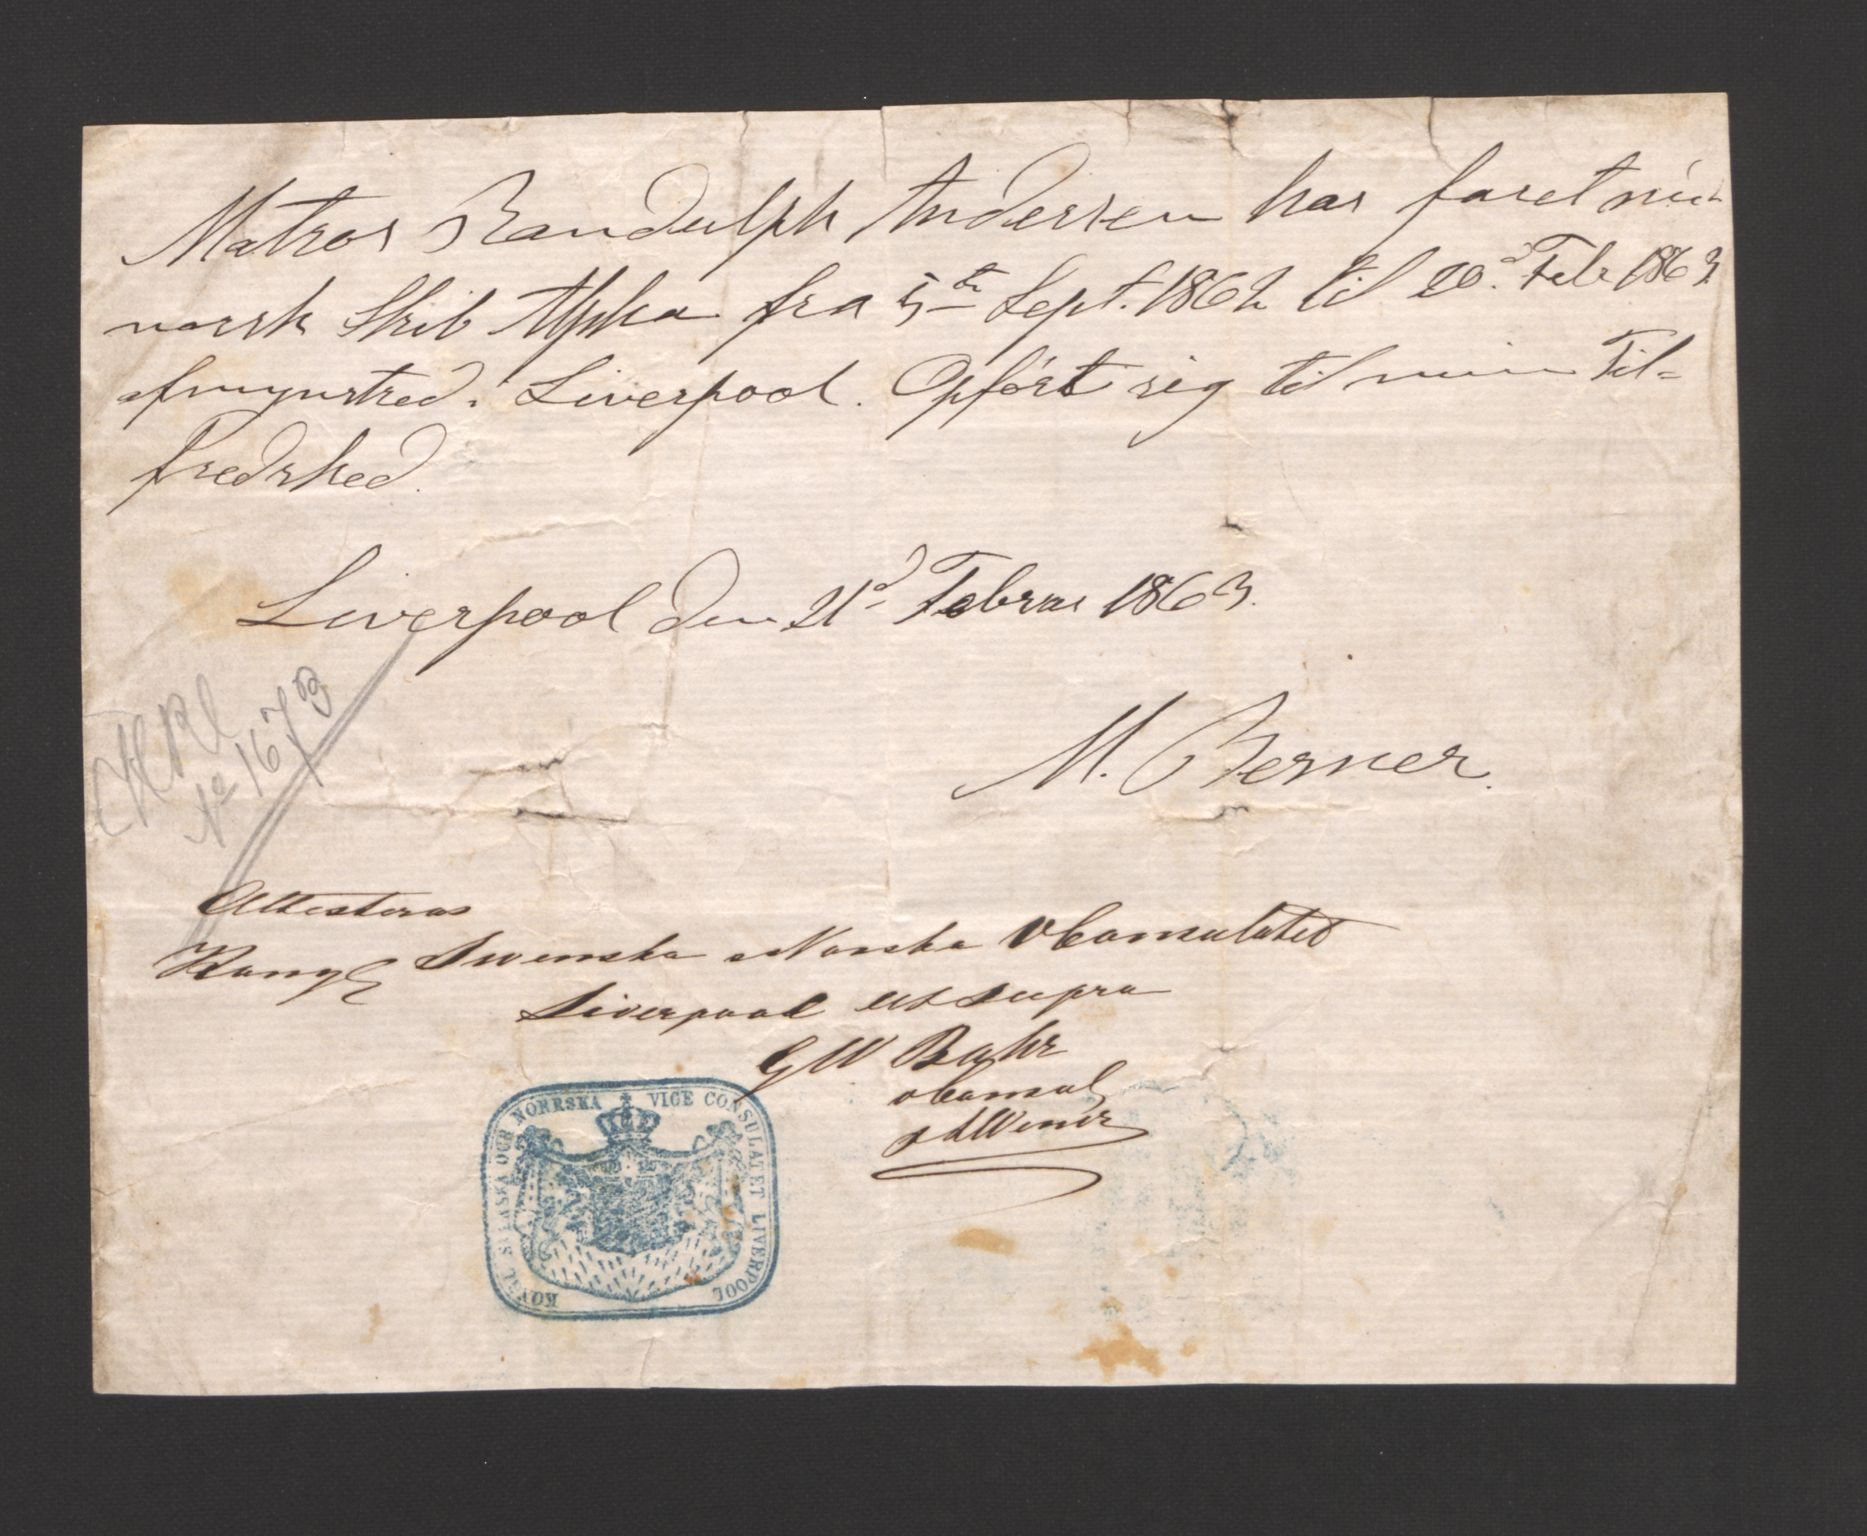 Matros Randulph Andersen har faret med
norsk Skib Alpha fra 5te Sept. 1862 til 20d. Febr 1863
afmynstred i Liverpool. Opført sig til min Til=
fredshed.
Liverpool den 21d Februar 1863.
M. Berner.
No 1673
Attesteras
Kongl Swenska o Norska v Consulatet
Liverpool ut supra
GW Bahr
v Consul
KONGL SVENSKA OCH NORRSKA VICE CONSULATET LIVERPOOL